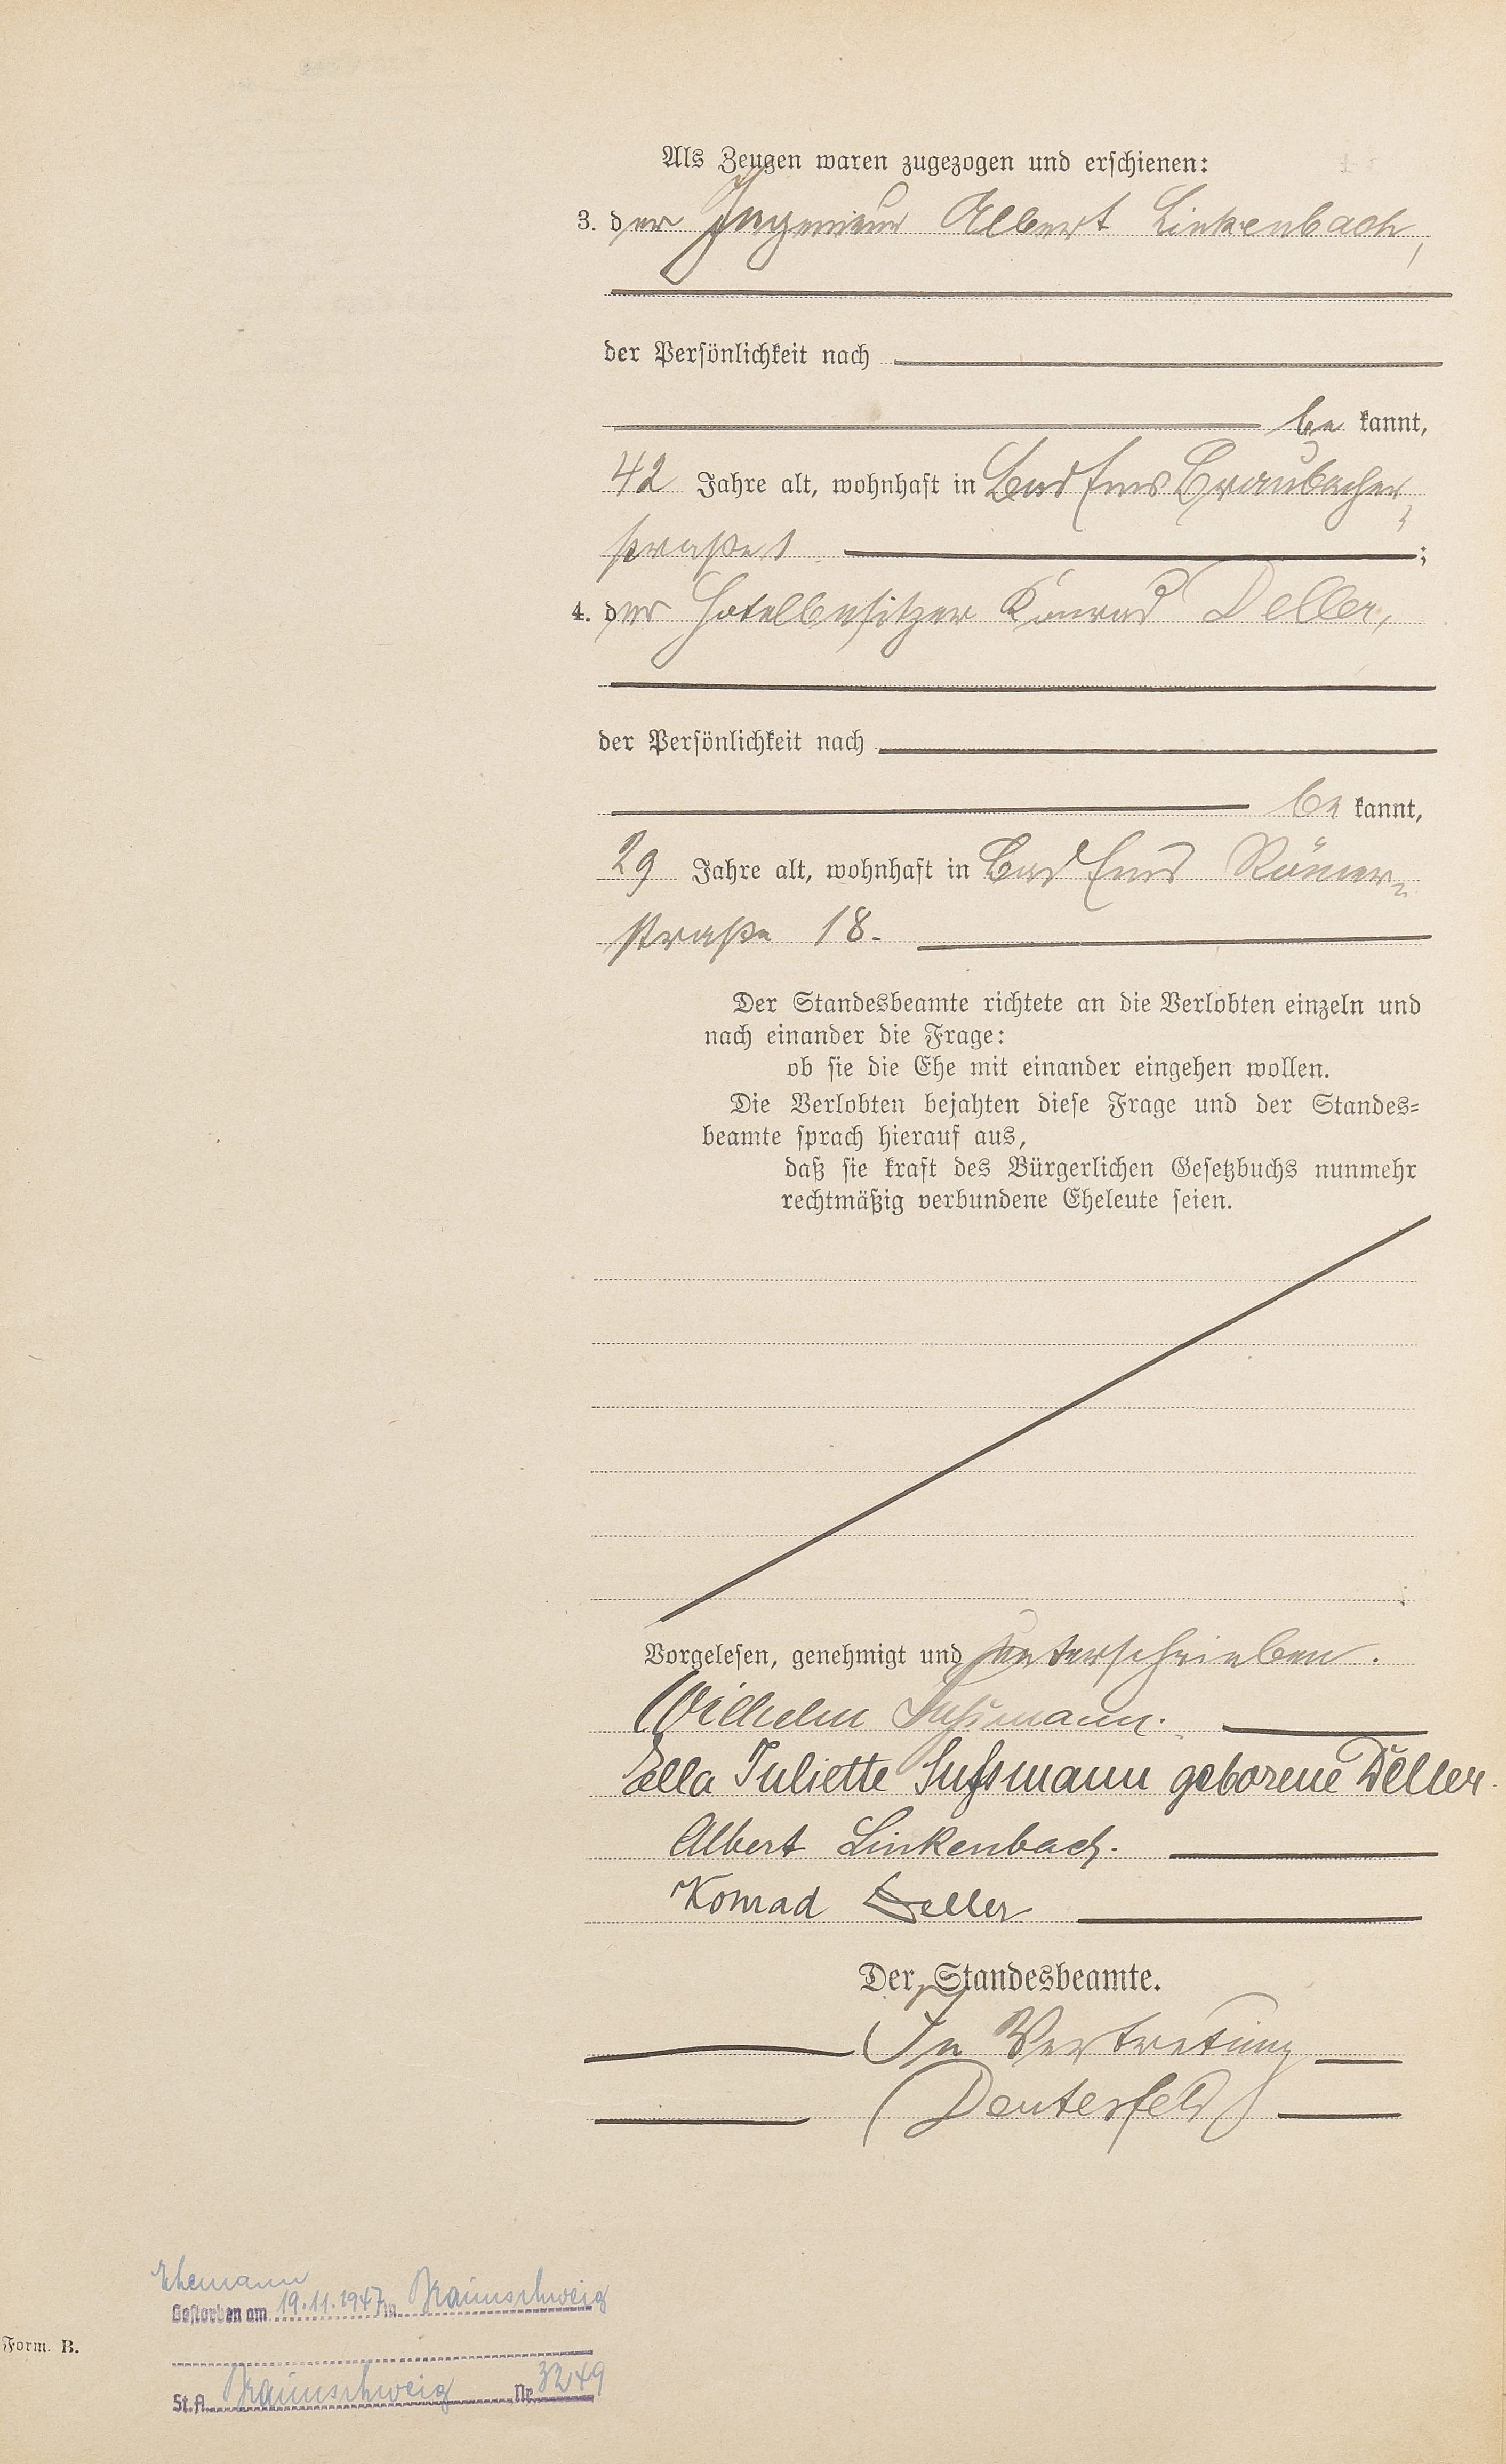 Als Zeugen waren zugezogen und erschienen:
3. der Ingenieur Albert Linkenbach,
der Persönlichkeit nach
be kannt,
42 Jahre alt, wohnhaft in Bad Ems Braubacher-
straße 1 ;
4. der Hotelbesitzer Konrad Deller,
der Persönlichkeit nach
be kannt,
29 Jahre alt, wohnhaft in Bad Ems Römer-
straße 18.
Der Standesbeamte richtete an die Verlobten einzeln und
nach einander die Frage:
ob sie die Ehe mit einander eingehen wollen.
Die Verlobten bejahten diese Frage und der Standes=
beamte sprach hierauf aus,
daß sie kraft des Bürgerlichen Gesetzbuchs nunmehr
rechtmäßig verbundene Eheleute seien.
Vorgelesen, genehmigt und unterschrieben.
Wilhelm Sußmann.
Ella Juliette Sußmann geborene Deller.
Albert Linkenbach.
Konrad Deller
Der Standesbeamte.
In Vertretung
Ehemann
Gestorben am 19.11.1947 in Braunschweig
Form. B.
St.A. Braunschweig Nr. 3249